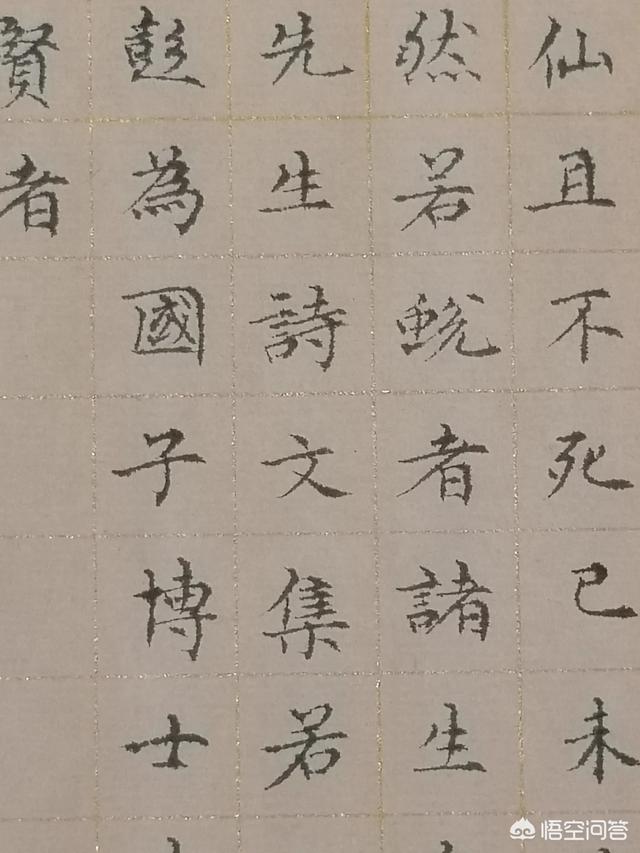 仙且不死已未
然若蛻者諸生
先生詩文集若
彭為國子博士
賢者
悟空问答